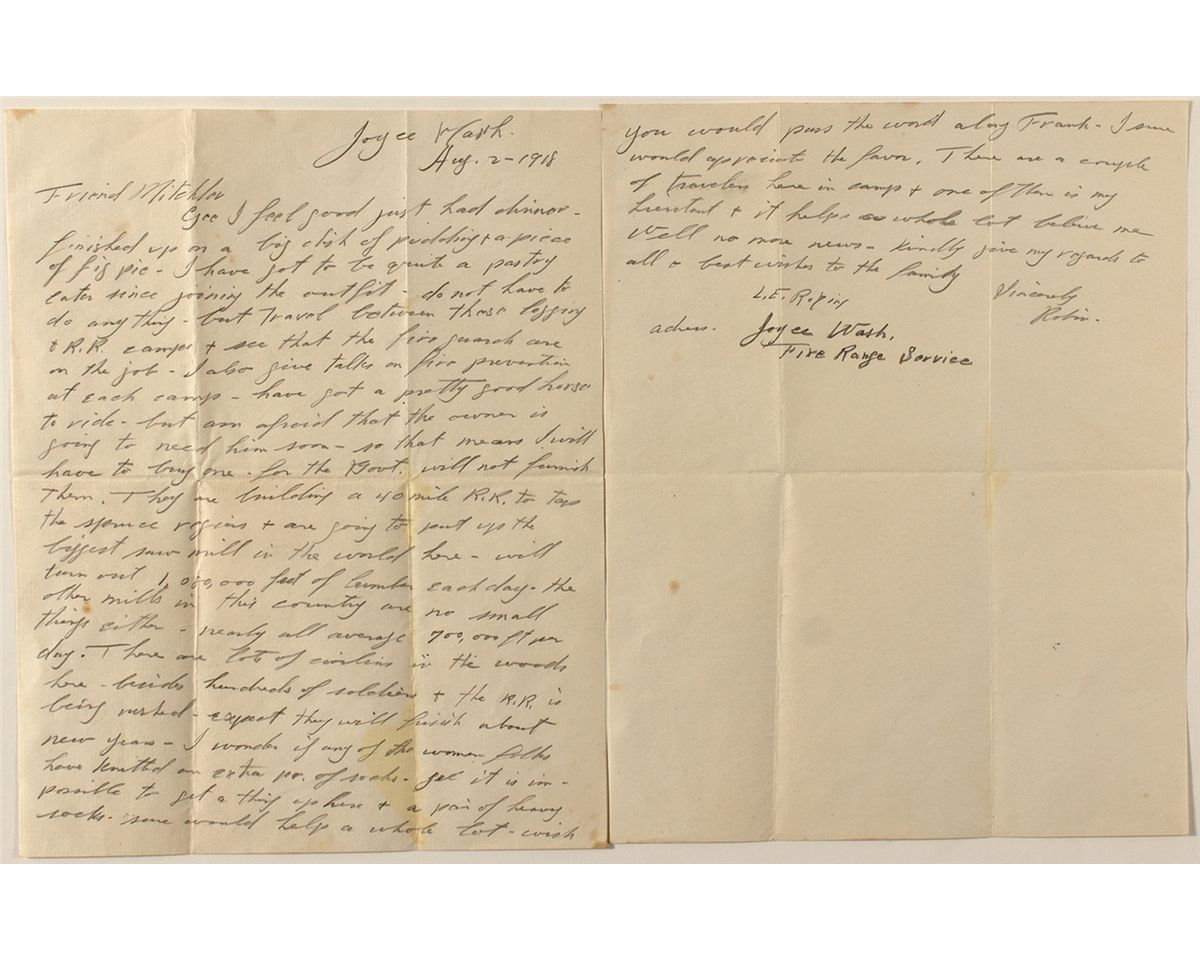 Joyce Wash.
Aug. 2-1918
Friend Mitchler
Gee I feel good just had dinner-
finished up on a big dish of pudding & a-piece
of fig pie- I have got to be quite a pastry
eater since joining the outfit- do not have to
do any thing- but travel between these logging
& R.R. camps & see that the fire guards are
on the job- I also give talks on fire prevention
at each camp- have got a pretty good horse
to ride- but am afraid that the owner is
going to need him soon- so that means I will
have to buy one- for the Govt. will not furnish
them. They are building a 40 mile R.R. to tap
the spruce regions & are going to put up the
biggest saw mill in the world here- will
turn out 1,000,000 feet of lumber each day- the
other mills in this country are no small
things either- nearly all average 700,000 ft per
day. There are lots of civilins in the woods
here- besides hundreds of soldiers & the R.R. is
being rushed- expect they will finish about
new years- I wonder if any of the women folks
have knitted an extra pr. of socks- gee it is im-
possible to get a thing up here & a pair of heavy
socks- sure would help a whole lot- wish
you would pass the word along Frank- I sure
would appreciate the favor. There are a couple
of travelers here in camp & one of them is my
& it helps a whole lot believe me
Well no more news- kindly give my regards to
all & best wishes to the family
Sincerely
Robin.
L.E.
adress. Joyce Wash.
Fire Range Service